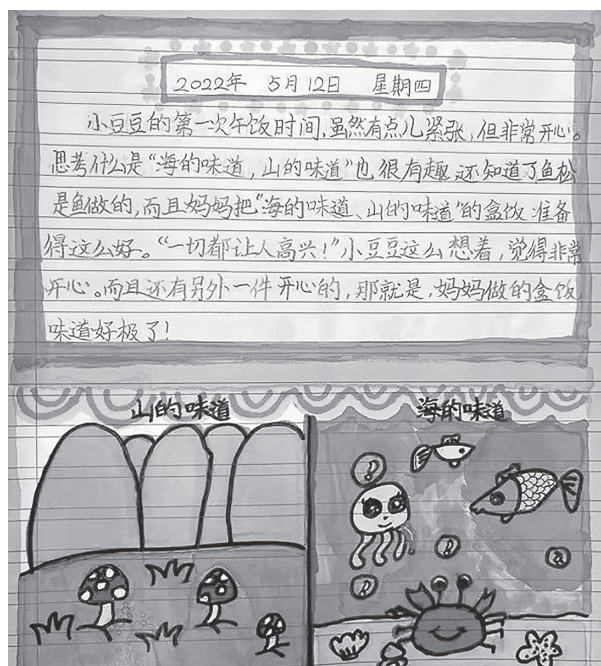 2022年 5月12日 星期四
小豆豆的第一次午饭时间,虽然有点儿紧张,但非常开心。
思考什么是“海的味道,山的味道”也很有趣,还知道了鱼松
是鱼做的,而且妈妈把“海的味道、山的味道”的盒饭准备
得这么好。“一切都让人高兴!”小豆豆这么想着,觉得非常
开心。而且还有另外一件开心的,那就是,妈妈做的盒饭
味道好极了!
山的味道
海的味道